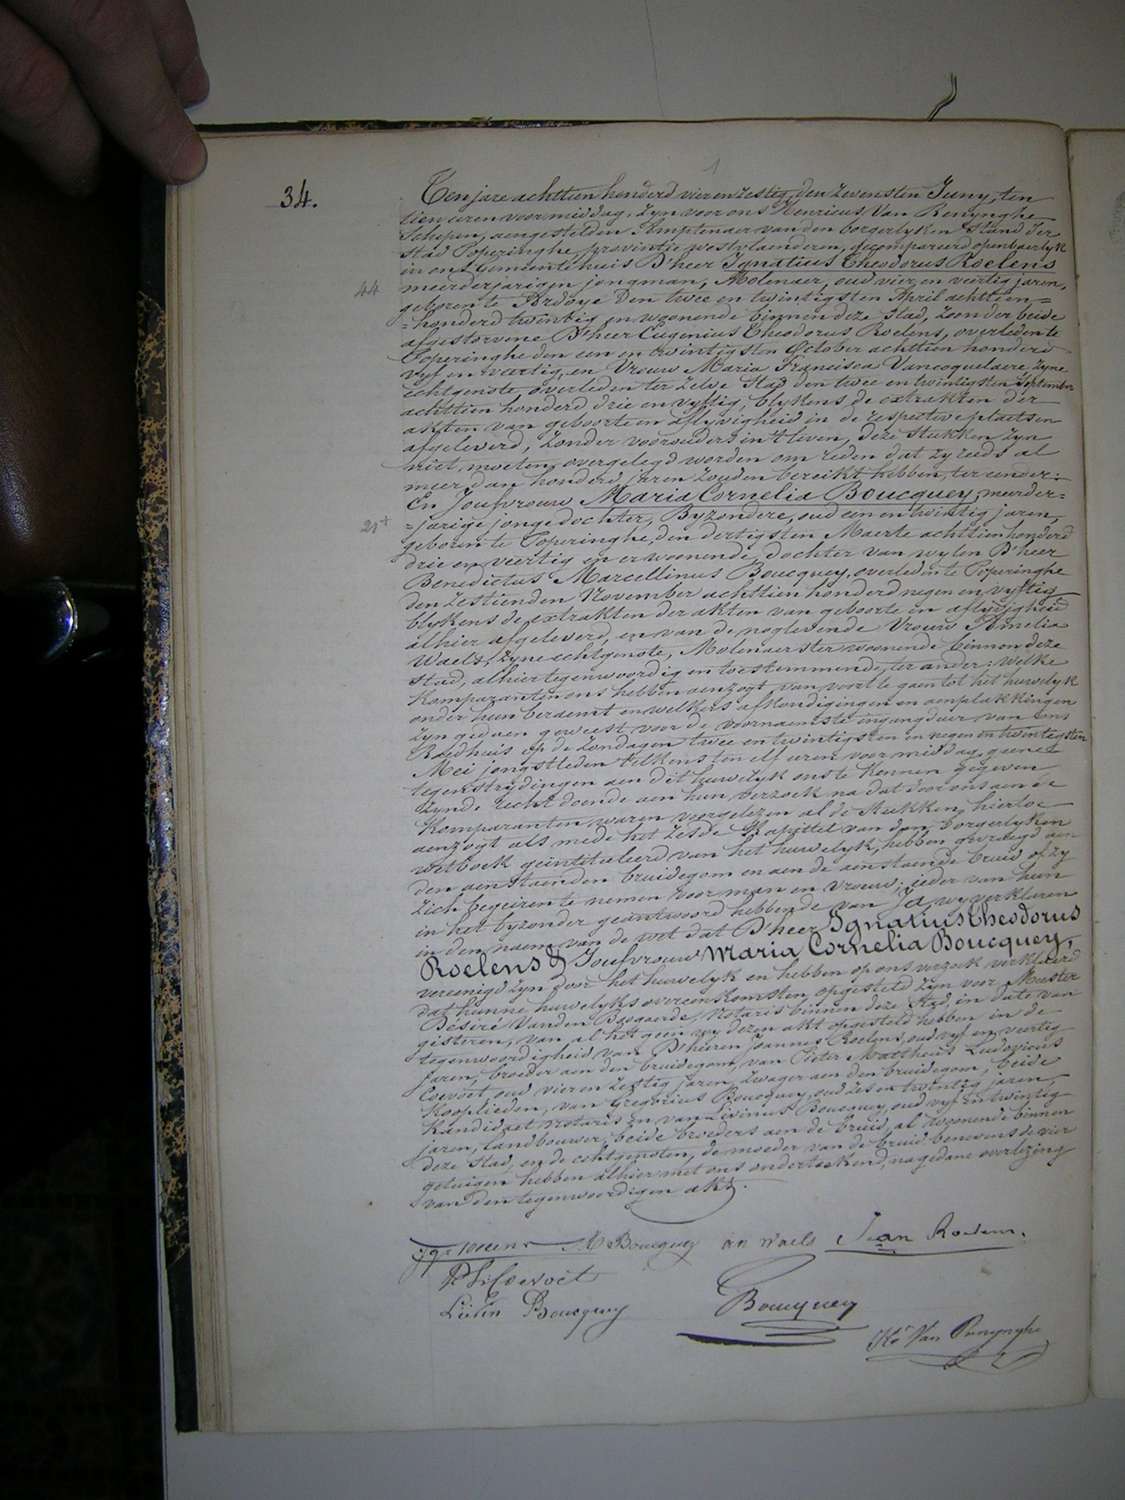 1
34.
Ten jare achttien honderd vier en zestig, den zevensten Juny, ten
tien uren voormiddag, zyn voor ons Henricus Van Renynghe
Schepen, aengestelden Amptenaer van den borgerlyken Stand der
stad Poperinghe, provintie westvlaenderen, gecompareerd openbaerlyk
in ons Gemeentehuis D'heer Ignatius Theodorus Roelens
44
meerderjarigen jongman, Molenaer, oud vier en veertig jaren,
geboren te Ardoye den twee en twintigsten April achttien=
=honderd twintig en woonende binnen deze stad, zoon der beide
afgestorvene D'heer Eugenius Theodorus Roelens, overleden te
Poperinghe den een en twintigsten October achttien honderd
vyf en veertig, en Vrouw Maria Francisca Vancoquelaere, zyne
echtgenote, overleden ter zelve Stad den twee en twintigsten September
achttien honderd drie en vyftig, blykens de extrakten der
akten van geboorte en aflyvigheid in de respective plaetsen
afgeleverd, zonder voorouders in 't leven, deze stukken zyn
niet moeten overgelegd worden om reden dat zy reeds al
meer dan honderd jaren zouden bereikt hebben, ter eender:
En Joufvrouw Maria Cornelia Boucquey, meerder=
21+
=jarige jonge dochter, Byzondere, oud een en twintig jaren,
geboren te Poperinghe, den dertigsten Maerte achttien honderd
drie en veertig en er woonende, dochter van wylen D'heer
Benedictus Marcellinus Boucquey, overleden te Poperinghe
den zestienden November achttien honderd negen en vyftig
blykens de extrakten der akten van geboorte en aflyvigheid
alhier afgeleverd, en van de noglevende Vrouw Amelia
Waels, zyne echtgenote, Molenaerster woonende binnen deze
stad, alhier tegenwoordig en toestemmende, ter ander: welke
komparanten ons hebben aenzogt van voort te gaen tot het huwelyk
onder hun beraemt en welkers afkondigingen en aenplakkingen
zyn gedaen geweest voor de voornaemste ingangdeur van ons
Raedhuis op de zondagen twee en twintigsten en negen en twintigsten
Mei jongstleden telkens ten elf uren voormiddag, geene
tegenstrydingen aen dit huwelyk ons te kennen gegeven
zynde recht doende aen hun verzoek na dat door ons aen de
komparanten waren voorgelezen al de stukken hiertoe
aenzogt als mede het zesde Kapittel van den borgerlyken
wetboek geïntituleerd van het huwelyk, hebben gevraegd aen
den aenstaenden bruidegom en aen de aenstaende bruid of zy
zich begeiren te nemen voor man en vrouw; ieder van hun
in het byzonder geäntwoord hebbende van ja, wy verklaren
in den naem van de wet dat D'heer Ignatius Theodorus
Roelens & Joufvrouw Maria Cornelia Boucquey,
vereenigd zyn door het huwelyk en hebben op ons verzoek verklaerd
dat hunne huwelyksovereenkomsten opgesteld zyn voor Meester
Desiré Vanden Bogaerde, Notaris binnen deze stad, in date van
gisteren, van al het geen wy dezen akt opgesteld hebben in de
tegenwoordigheid van D'heeren Joannes Roelens, oud vyf en veertig
jaren, broeder aen den bruidegom, van Pieter Mattheus Ludovicus
Coevoet, oud vier en zestig jaren, zwager aen den bruidegom, beide
kooplieden, van Gregorius Boucquey, oud zes en twintig jaren,
Kandidaet Notaris en van Livinus Boucquey oud vyf en twintig
jaren, landbouwer, beide broeders aen de bruid, al woonende binnen
deze stad, en de echtgenoten, de moeder van de bruid benevens de vier
getuigen hebben alhier met ons onderteekend, na gedane overlezing
van den tegenwoordigen akt.
Igs Roelens M Boucquey am Waels Jean Roelens.
P. L. Coevoet
Livin Boucquey Boucquey
Hri Van Renynghe